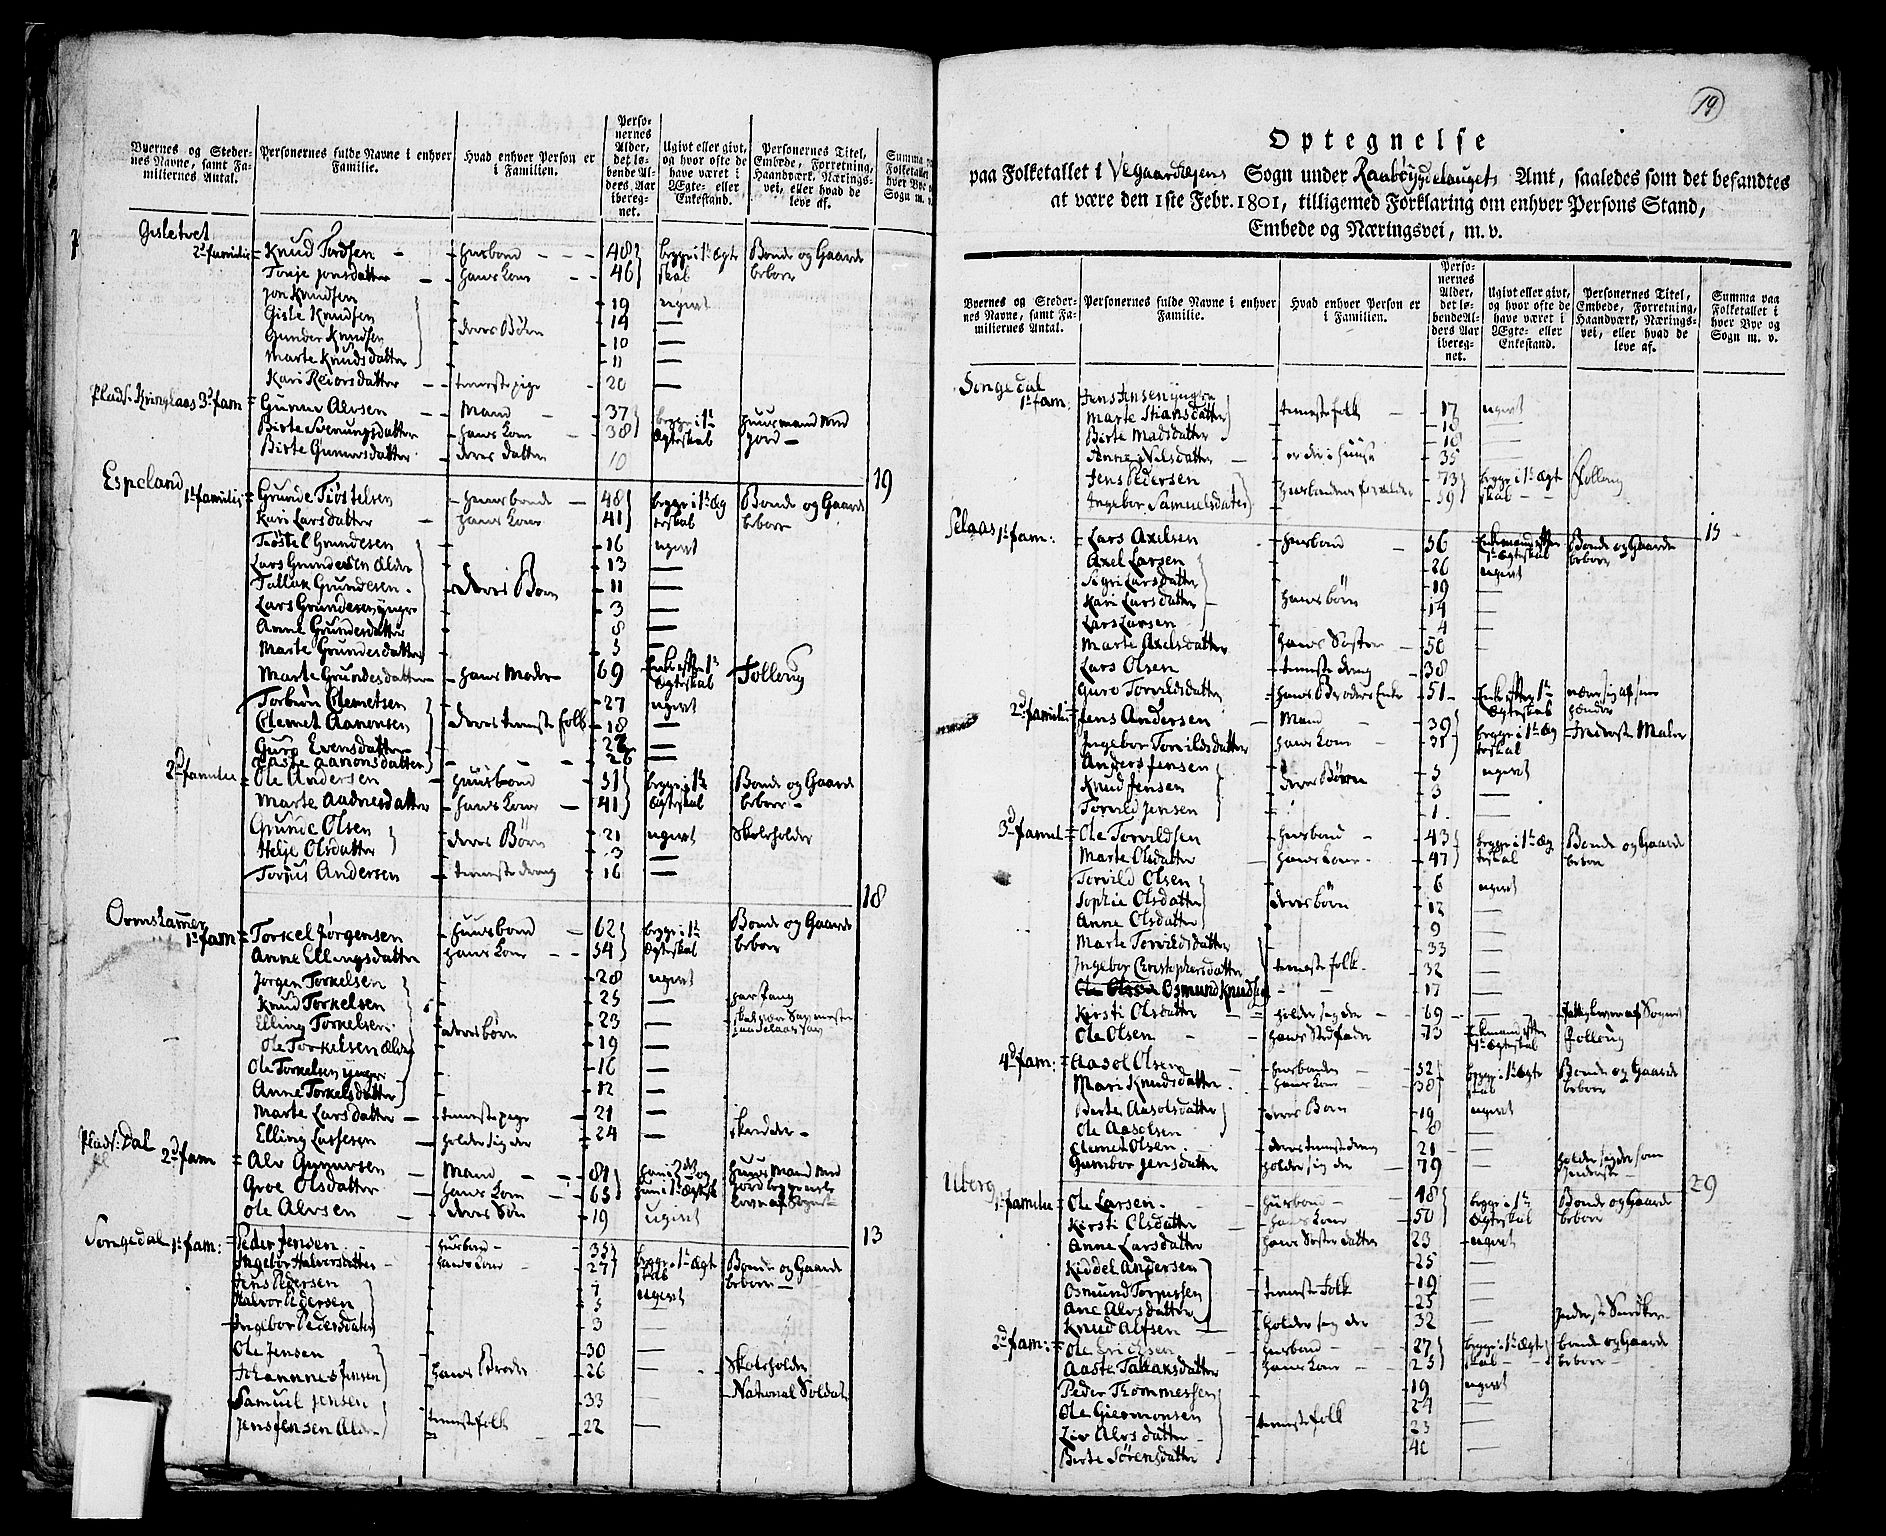 Byernes og Steder-
nes Navne, samt Fa-
miliernes Antal.
Personernes fulde Navne i enhver
Familie.
Hvad enhver Person er
i Familien.
Perso-
nernes
Alder,
det lø-
bende Al-
ders Aar
ibereg-
net.
Ugivt eller givt,
og hvor ofte de
have været i
Ægte- eller
Enkestand.
Personernes Titel,
Embede, Forretning,
Haandværk, Nærings-
vei, eller hvad de
leve af.
Summa
Folketallet
hver Bye
Sogn m. v.
Gisletvet
2d familie = Knud Tordsen - husbond - 48 begge i 1ste Ægte Bonde og Gaard
Tonje Jonsdatter - hans Kone - 46 skab beboer
Jon Knudsen 19 ugivt
Gisle Knudsen 14 —
deres Börn
Gunder Knudsen 10 —
Marte Knudsdatter 11 —
Kari Reiersdatter - tienestepige 20 —
Plads 3d fam = Gunner Alvsen - Mand - 37 begge i 1ste huusmand med
Birte - hans Kone - 38 Ægteskab jord
Birte Gunnersdatter deres datter 10
19
Espeland
1ste familie = Grunde Tiøstelsen - huusbonde - 48 begge i 1ste Æg Bonde og Gaard
Kari Larsdatter - hans Kone 41 teskab beboer
Tiøstel Grundesen 16 ugivt
Lars Grundesen Ældre 13 —
Tallak Grundesen 11 —
deres Born
Lars Grundesen yngre 3 —
Anne Grundesdatter 8 —
Marte Grundesdatter 5 —
Marte Grundesdatter - hans Moder 69 Enke efter 1ste Folloug
Ægteskab
Torbiön Clemetsen 27 ugivt
Clemet Aanonsen deres tieneste folk 18 —
Guro Evensdatter 22 —
Aaste Aanonsdatter 26 —
2d familie = Ole Andersen - huusbond 51 begge i 1ste Bonde og Gaard
Marte Aadnesdatter hans Kone 41 Ægteskab beboer
Grunde Olsen 21 ugivt Skoleholder
deres Börn
Helje Olsdatter 13 —
Torjus Andersen - tieneste dreng 16 —
18
Ormskammer
1ste fam = Torkel Jørgensen huusbond 62 begge i 1ste Bonde og Gaard
Anne Ellingsdatter hans Kone 54 Ægteskab beboer
Jørgen Torkelsen 28 ugivt
Knud Torkelsen 25 —
Elling Torkelsen 23 —
deres börn
Ole Torkelsen Ældre 19 —
Ole Torkelsen yngre 16
Anne Torkelsdatter 12 —
Marte Larsdatter - tienestepige 21 —
Elling Lassesen - holder sig der 24 —
Plads: Dal
2d fam = Alv Gunersen - Mand 81 huusmand med
Groe Olsdatter - hans Kone - 65
Ole Alvsen - deres Sön 19 ugivt
13
Songedal 1ste fam: = Peder Jensen husbond 35 begge i 1ste Ægte Bonde og Gaard
Ingebor Halvorsdatter hans Kone 27 skab beboer
Jens Pedersen 7 ugivt
Halvor Pedersen 5
Ingebor Pedersdatter 3 —
Ole Jensen 30 —
Johannes Jensen hans Brødre 26 — Skoleholder
Samuel Jensen 33 — National Soldat
Jens Jensen Ældre tieneste folk 22 —
19
Optegnelse
paa Folketallet i Vegaardseiens Sogn under Raabøygdelaugets Amt, saaledes som det befandtes
at være den 1ste Febr. 1801, tilligemed Forklaring om enhver Persons Stand,
Embede og Næringsvei, m. v.
Byernes og Steder-
nes Navne, samt Fa-
miliernes Antal.
Personernes fulde Navne i enhver
Familie.
Hvad enhver Person er
i Familien.
Perso-
nernes
Alder,
det lø-
bende Al-
ders Aar
ibereg-
net.
Ugivt eller givt,
og hvor ofte de
have været i
Ægte- eller
Enkestand.
Personernes Titel,
Embede, Forretning,
Haandværk, Nærings-
vei, eller hvad de
leve af.
Summa paa
Folketallet i
hver Bye og
Sogn m. v.
Songedal
1ste fam: Jens Jensen yngre 17 ugivt
Marte Stiansdatter tieneste folk 18 —
Birte Madsdatter 18 —
Anne Nilsdatter - er der i huuse 35 —
Jens Pedersen 73 begge i 1ste Ægte Folloug
Ingebor Samuelsdatter husbondens forældre 59 skab
15
Selaas 1ste fam: = Lars Axelsen - husbond 56 Enkemand efter Bonde og Gaard
1ste Ægteskab beboer
Axel Larsen 26 ugivt
Sigri Larsdatter 19 —
Kari Larsdatter hans börn 14 —
Lars Larsen 4 —
Marte Axelsdatter hans Søster 50 —
Lars Olsen - tieneste dreng 38 —
Guro Torvildsdatter - hans Broders Enke 51 Enke efter 1ste
Ægteskab
2d familie = Jens Andersen - Mand - 39 begge i 1ste Æg Inderst Maler
Ingebor Torvildsdatter hans Kone 31 teskab
Anders Jensen 5 ugivt
Knud Jensen deres Børn 3 —
Torvild Jensen 1 —
3d famil = Ole Torvildsen - husbond - 43 begge i 1ste Æg Bonde og Gaard
Marte Olsdatter - hans Kone 47 teskab beboer
Torvild Olsen 6 ugivt
Sophie Olsdatter deres börn 12 —
Anne Olsdatter 9 —
Marte Torvildsdatter 33 —
Ingebor Christophersdatter tieneste folk 32 —
Osmund Knudsen 17 —
Kirsti Olsdatter - holder sig der 69 —
Ole Olsen - hans Stedfader 73 Enkemand efter Folloug
1ste Ægteskab
4d fam: = Aasol Olsen - husbonde 52 begge i 1ste Ægte Bonde og Gaard
Mari Knudsdatter - hans Kone 38 skab beboer
Berte Aasolsdatter deres Born 19 ugivt
Ole Aasolsen 8 —
Clemet Olsen - deres tienestedreng 21 —
Gumbor Jensdatter holder sig der 79 —
29
Uberg
1ste familie = Ole Larsen - husbond 48 begge i 1ste Bonde og Gaard
Kirsti Olsdatter - hans Kone 50 Ægteskab beboer
Anne Larsdatter - hans Søster datter 23 ugivt
Kiddel Andersen 25 —
Osmund Torjussen tieneste folk 19 —
Ane Alvsdatter 25 —
Knud Alfsen - holder sig der 32 —
2d fam: = Ole Ericksen - husbond - 27 begge i 1ste Ægte bonde og Gaard
Aaste Tallaksdatter hans Kone 25 skab beboer
Peder Thommessen 19 ugivt
Ole Giermonsen 24 —
tieneste folk
Liv Alvsdatter 23 —
Birte Sørensdatter 40 —